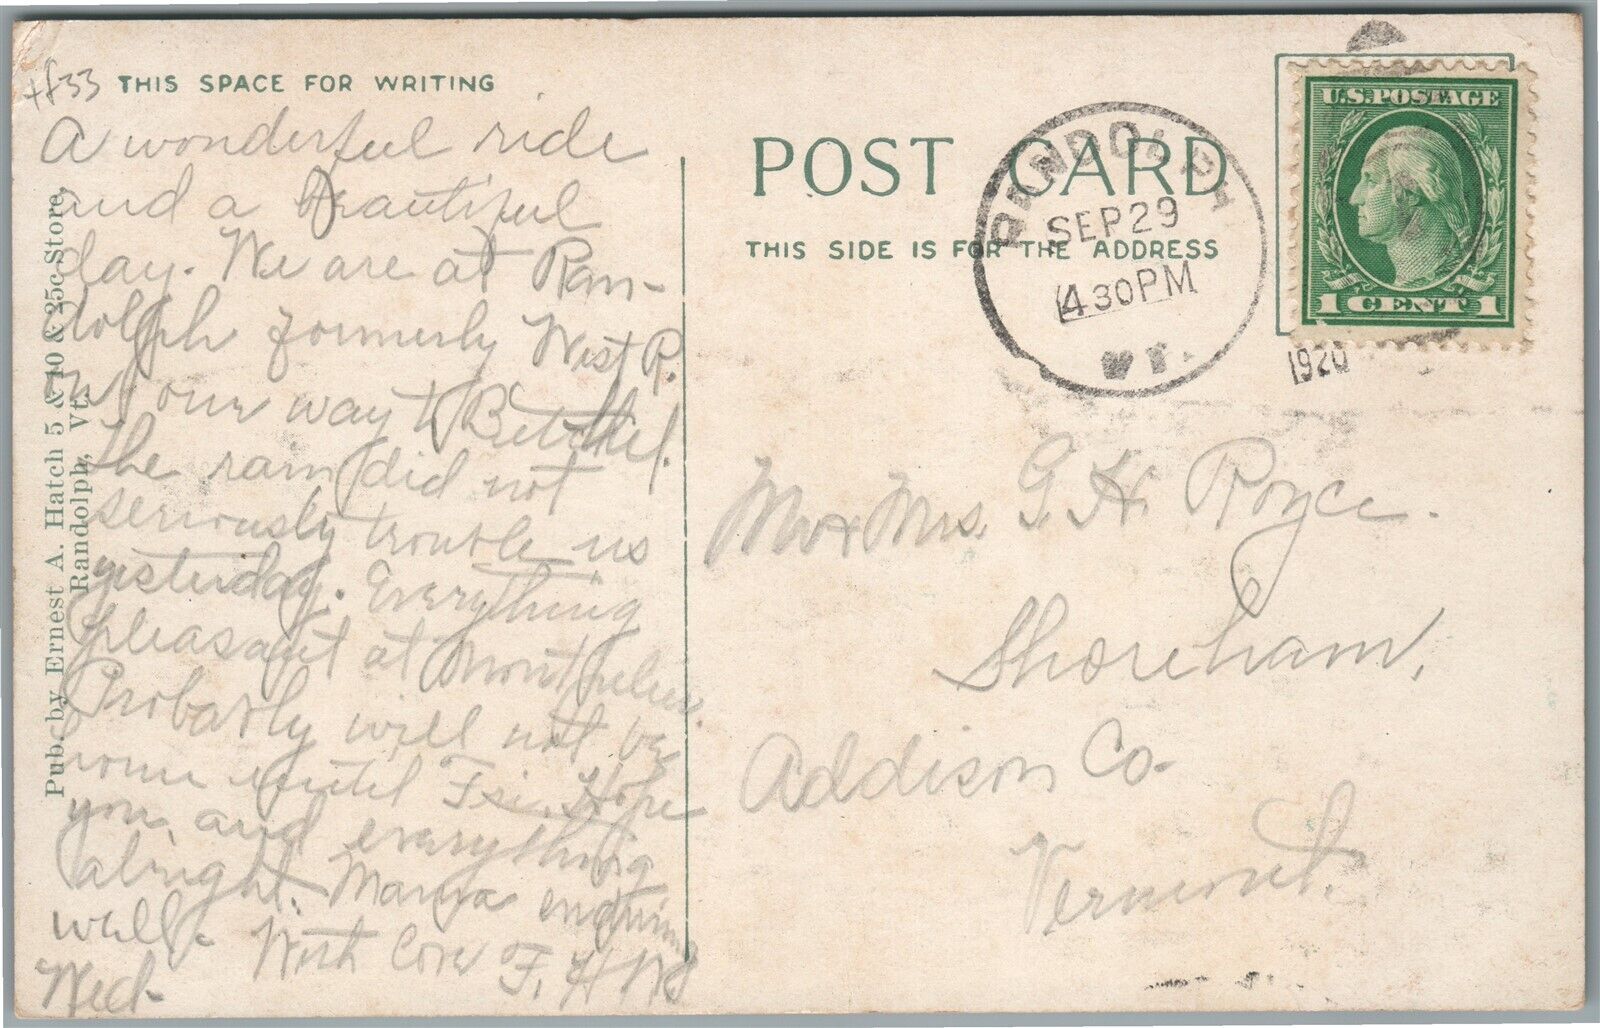 +833
THIS SPACE FOR WRITING
A wonderful ride
and a beautiful
day. We are at Ran-
dolph formerly West R.
on our way to Bethel.
The rain did not
seriously trouble us
yesterday. Everything
pleasant at Montpelier.
Probably will not be
home until Fri. Hope
you and everything
alright. Mama enduring
well. With Love F. H.
Wed.
Pub. by Ernest A. Hatch 5 & 10 & 25c Store,
Randolph, Vt.
POST CARD
THIS SIDE IS FOR THE ADDRESS
RANDOLPH
SEP 29
430PM
VT.
1920
U.S. POSTAGE
1 CENT 1
Mr & Mrs. G. H. Royce.
Shoreham,
Addison Co.
Vermont.